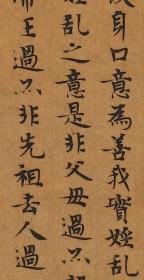 身口意為善我實婬乱
乱之意是非父母過亦
王過亦非先祖去人過